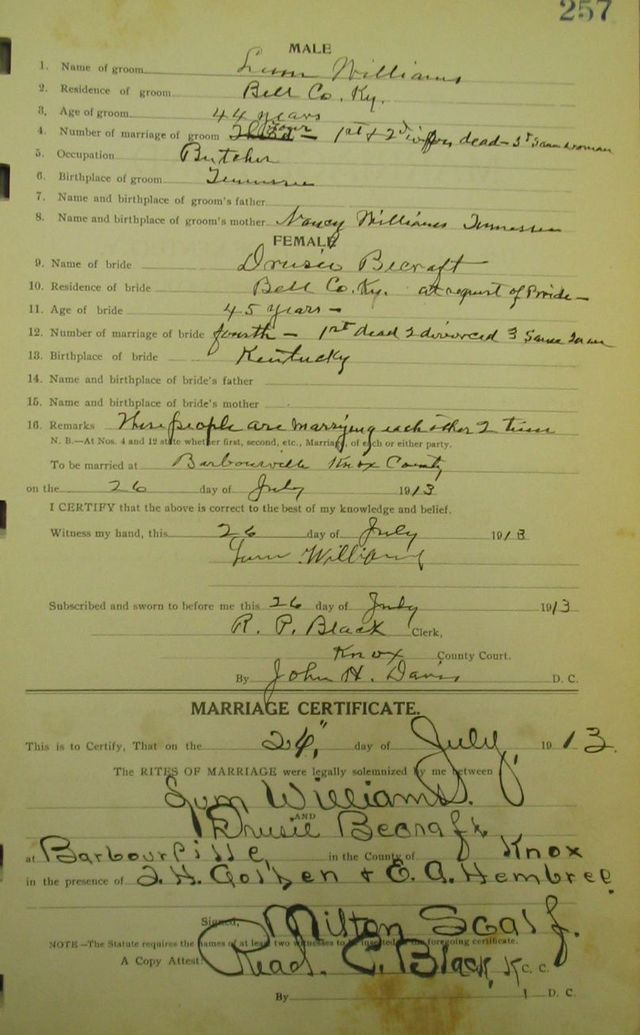 257
MALE
1. Name of groom Lum Williams
2. Residence of groom Bell Co. Ky.
3. Age of groom 44 years
4. Number of marriage of groom Four — 1st & 2d wifes dead — 3d same woman
5. Occupation Butcher
6. Birthplace of groom Tennessee
7. Name and birthplace of groom's father
8. Name and birthplace of groom's mother Nancy Williams Tennessee
FEMALE
9. Name of bride Drusie Becraft
10. Residence of bride Bell Co. Ky. at request of Bride —
11. Age of bride 45 years —
12. Number of marriage of bride fourth — 1st dead 2 divorced 3 same man
13. Birthplace of bride Kentucky
14. Name and birthplace of bride's father
15. Name and birthplace of bride's mother
16. Remarks These people are marrying each other 2 time
N. B.—At Nos. 4 and 12 state whether first, second, etc., Marriage, of each or either party.
To be married at Barbourville Knox County
on the 26 day of July 1913
I CERTIFY that the above is correct to the best of my knowledge and belief.
Witness my hand, this 26 day of July 1913
Lum Williams
Subscribed and sworn to before me this 26 day of July 1913
R. P. Black Clerk,
Knox County Court.
By John H. Davis D. C.
MARRIAGE CERTIFICATE.
This is to Certify, That on the 26, day of July, 1913.
The RITES OF MARRIAGE were legally solemnized by me between
Lum Williams.
AND
Drusie Becraft
at Barbourville, in the County of Knox
in the presence of J. H. Golden & E. A. Hembree.
Signed, Milton Scalf.
NOTE—The Statute requires the names of at least two witnesses to be inserted in the foregoing certificate.
A Copy Attest: Read. P. Black, K C. C.
By D. C.